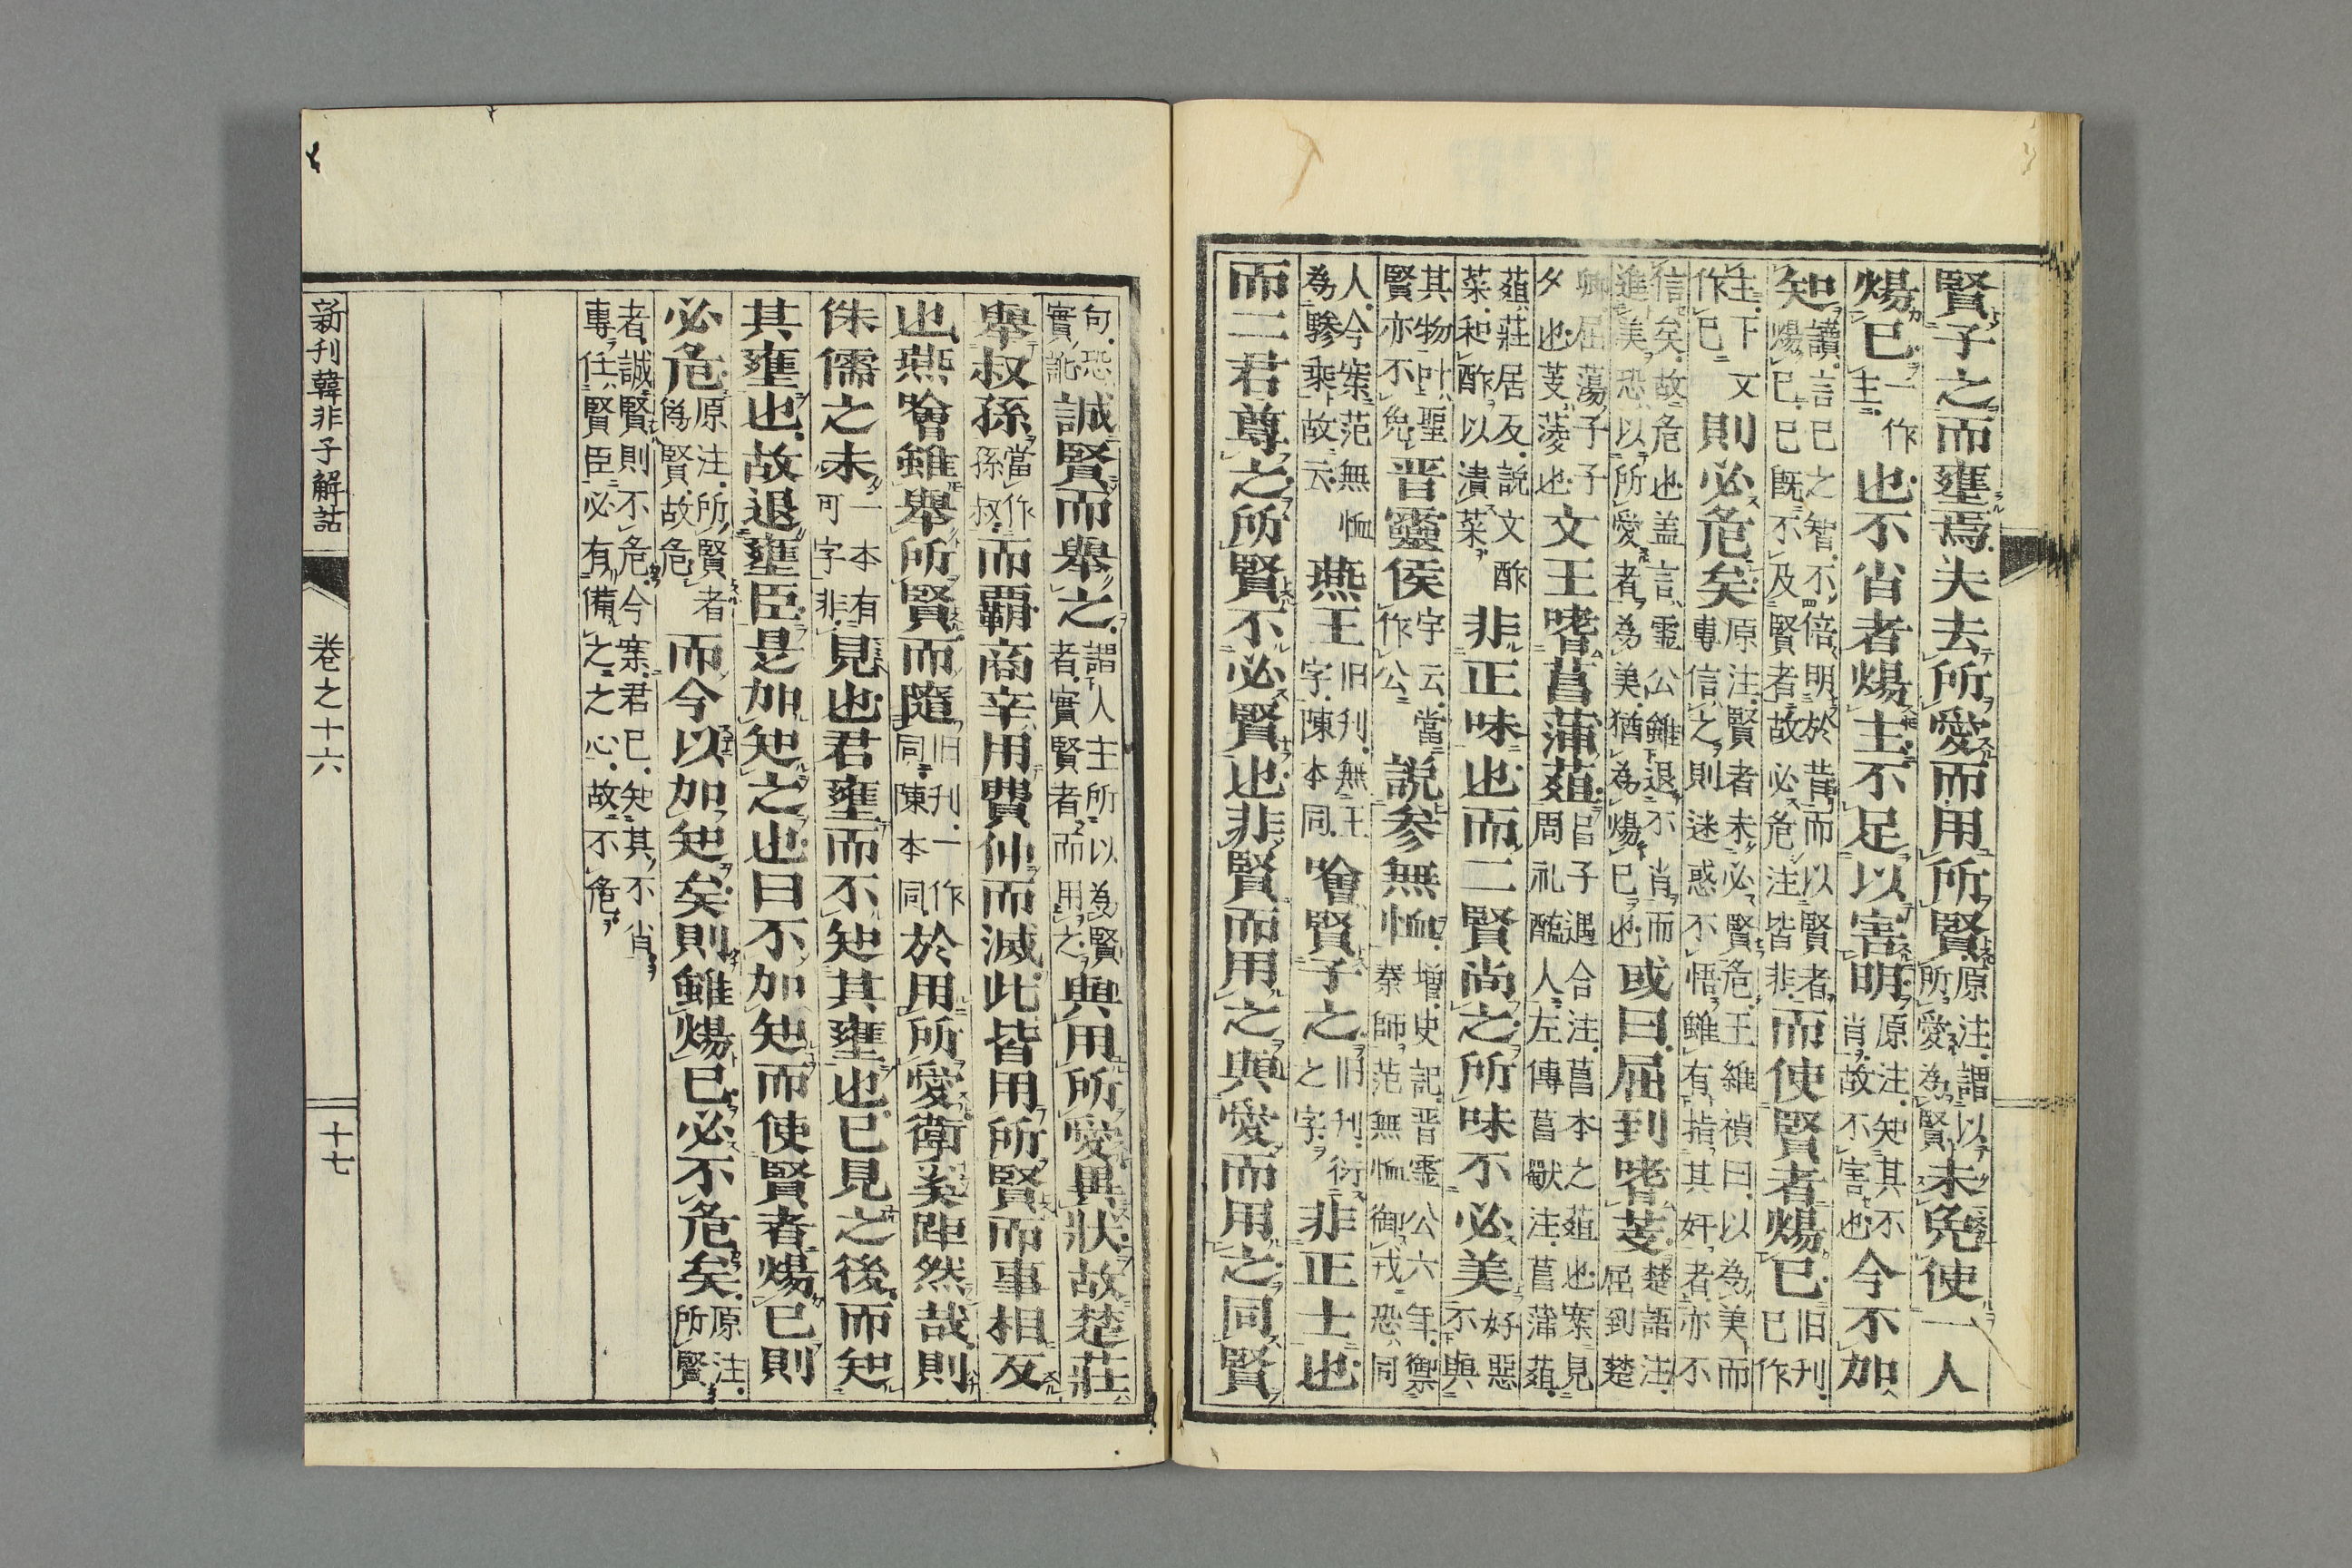 賢子之而壅焉夫去所愛而用所賢原注謂以所愛為賢未免使一人
煬已一作主也不肖者煬主不足以害明原注知其不肖故不害也今不加
知讀言已之智不倍明於昔而以賢者煬已已既不及賢者故必危注皆非而使賢者煬已旧刋已作
主下文作已則必危矣原注賢者未必賢危王維禎曰以為美而專信之則迷惑不悟雖有指其奸者亦不
信矣故危也盖言霊公雖退不肖而進美恐以所愛者為美猶為煬已也或曰屈到嗜芰楚語注屈到楚
卿屈蕩子子夕也芰薐也文王嗜菖蒲葅呂子遇合注菖本之葅也案見周礼醢人左傳菖歜注菖蒲葅
葅莊居反説文酢菜和酢以漬菜非正味也而二賢尚之所味不必美好惡不與
其物叶聖賢亦不免晋靈侯宇云當作公説参無恤増史記晋霊公六年禦秦師范無恤御戎恐同
人今案范無恤為驂乗故云燕王旧刋無王字陳本同噲賢子之旧刋衍之字非正士也
而二君尊之所賢不必賢也非賢而用之與愛而用之同賢
句恐誠實訛誠賢而舉之謂人主所以為賢者實賢者而用之與用所愛異狀故楚莊
舉叔孫當作孫叔而覇商辛用費仲而滅此皆用所賢而事相反
也燕噲雖舉所賢而隨旧刋一作同陳本同於用所愛衛奚距然哉則
侏儒之未一本有可字非見也君壅而不知其壅也已見之後而知
其壅也故退壅臣是加知之也曰不加知而使賢者煬已則
必危原注所賢者爲賢故危而今以加知矣則雖煬已必不危矣原注所賢
者誠賢則不危今案君已知其不肖專任賢臣必有備之之心故不危
新刋韓非子解詁
卷之十六
十七